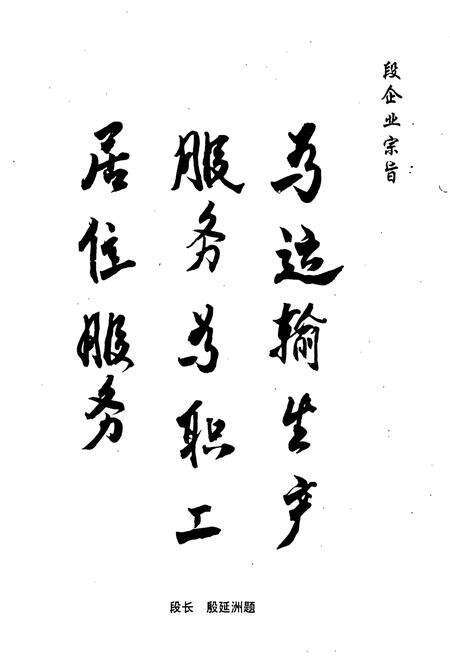 段企业宗旨
为运输生产
服务为职工
居住服务
段长 殷延洲题